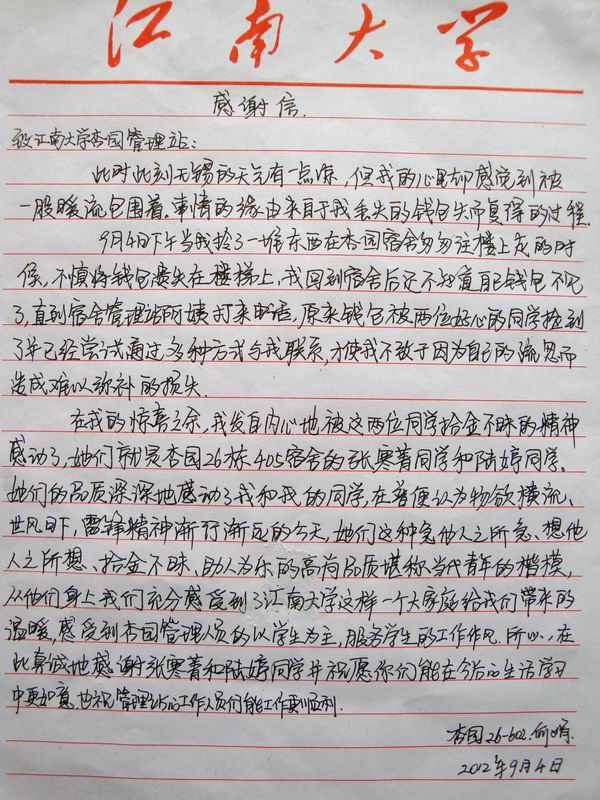 江南大学
感谢信.
致江南大学杏园管理站:
此时此刻无锡的天气有一点凉,但我的心里却感觉到被
一股暖流包围着.事情的缘由来自于我丢失的钱包失而复得的过程.
9月4日下午当我拎了一堆东西在杏园宿舍匆匆往楼上走的时
候,不慎将钱包遗失在楼梯上,我回到宿舍后还不知道自己钱包不见
了,直到宿舍管理站阿姨打来电话,原来钱包被两位好心的同学捡到
了并已经尝试通过多种方式与我联系,才使我不致于因为自己的疏忽而
造成难以弥补的损失.
在我的惊喜之余,我发自内心地被这两位同学拾金不昧的精神
感动了,她们就是杏园26栋405宿舍的张寒菁同学和陆婷同学.
她们的品质深深地感动了我和我的同学,在普便认为物欲横流、
世风日下,雷锋精神渐行渐远的今天,她们这种急他人之所急、想他
人之所想、拾金不昧、助人为乐的高尚品质堪称当代青年的楷模,
从他们身上我们充分感受到了江南大学这样一个大家庭给我们带来的
温暖,感受到杏园管理人员的以学生为主,服务学生的工作作风.所以,在
此真诚地感谢张寒菁和陆婷同学并祝愿你们能在今后的生活学习
中更如意,也祝管理站的工作人员们能工作顺利.
杏园26-602.何娟.
2012年9月4日